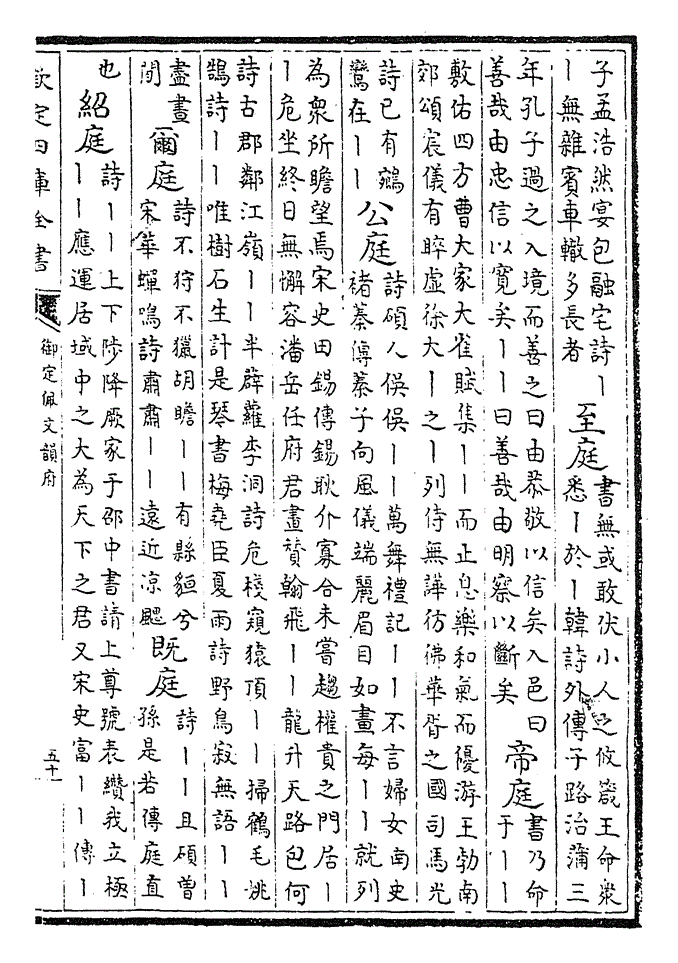 子孟浩然宴包融宅詩丨
丨無雜賓車轍多長者
至庭
書無或敢伏小人之攸箴王命衆
悉丨於丨韓詩外傳子路治蒲三
年孔子過之入境而善之曰由恭敬以信矣入邑曰
善哉由忠信以寬矣丨丨曰善哉由明察以斷矣
帝庭
書乃命
于丨丨
敷佑四方曹大家大雀賦集丨丨而止息樂和氣而優游王勃南
郊頌宸儀有睟虛徐大丨之丨列侍無譁彷彿華胥之國司馬光
詩已有鵷
鸞在丨丨
公庭
詩碩人俁俁丨丨萬舞禮記丨丨不言婦女南史
褚蓁傳蓁子向風儀端麗眉目如畫每丨丨就列
為衆所瞻望焉宋史田錫傳錫耿介寡合未嘗趨權貴之門居丨
丨危坐終日無懈容潘岳任府君畫贊翰飛丨丨龍升天路包何
詩古郡鄰江嶺丨丨半薜蘿李洞詩危棧窺猿頂丨丨掃鶴毛姚
鵠詩丨丨唯樹石生計是琴書梅堯臣夏雨詩野鳥寂無語丨丨
盡晝
閒
爾庭
詩不狩不獵胡瞻丨丨有縣貆兮
宋華蟬鳴詩肅肅丨丨遠近凉飔
既庭
詩丨丨且碩曾
孫是若傳庭直
也
紹庭
詩丨丨上下陟降厥家于邵中書請上尊號表纘我立極
丨丨應運居域中之大為天下之君又宋史富丨丨傳丨
欽定四庫全書
御定佩文韻府
五十一